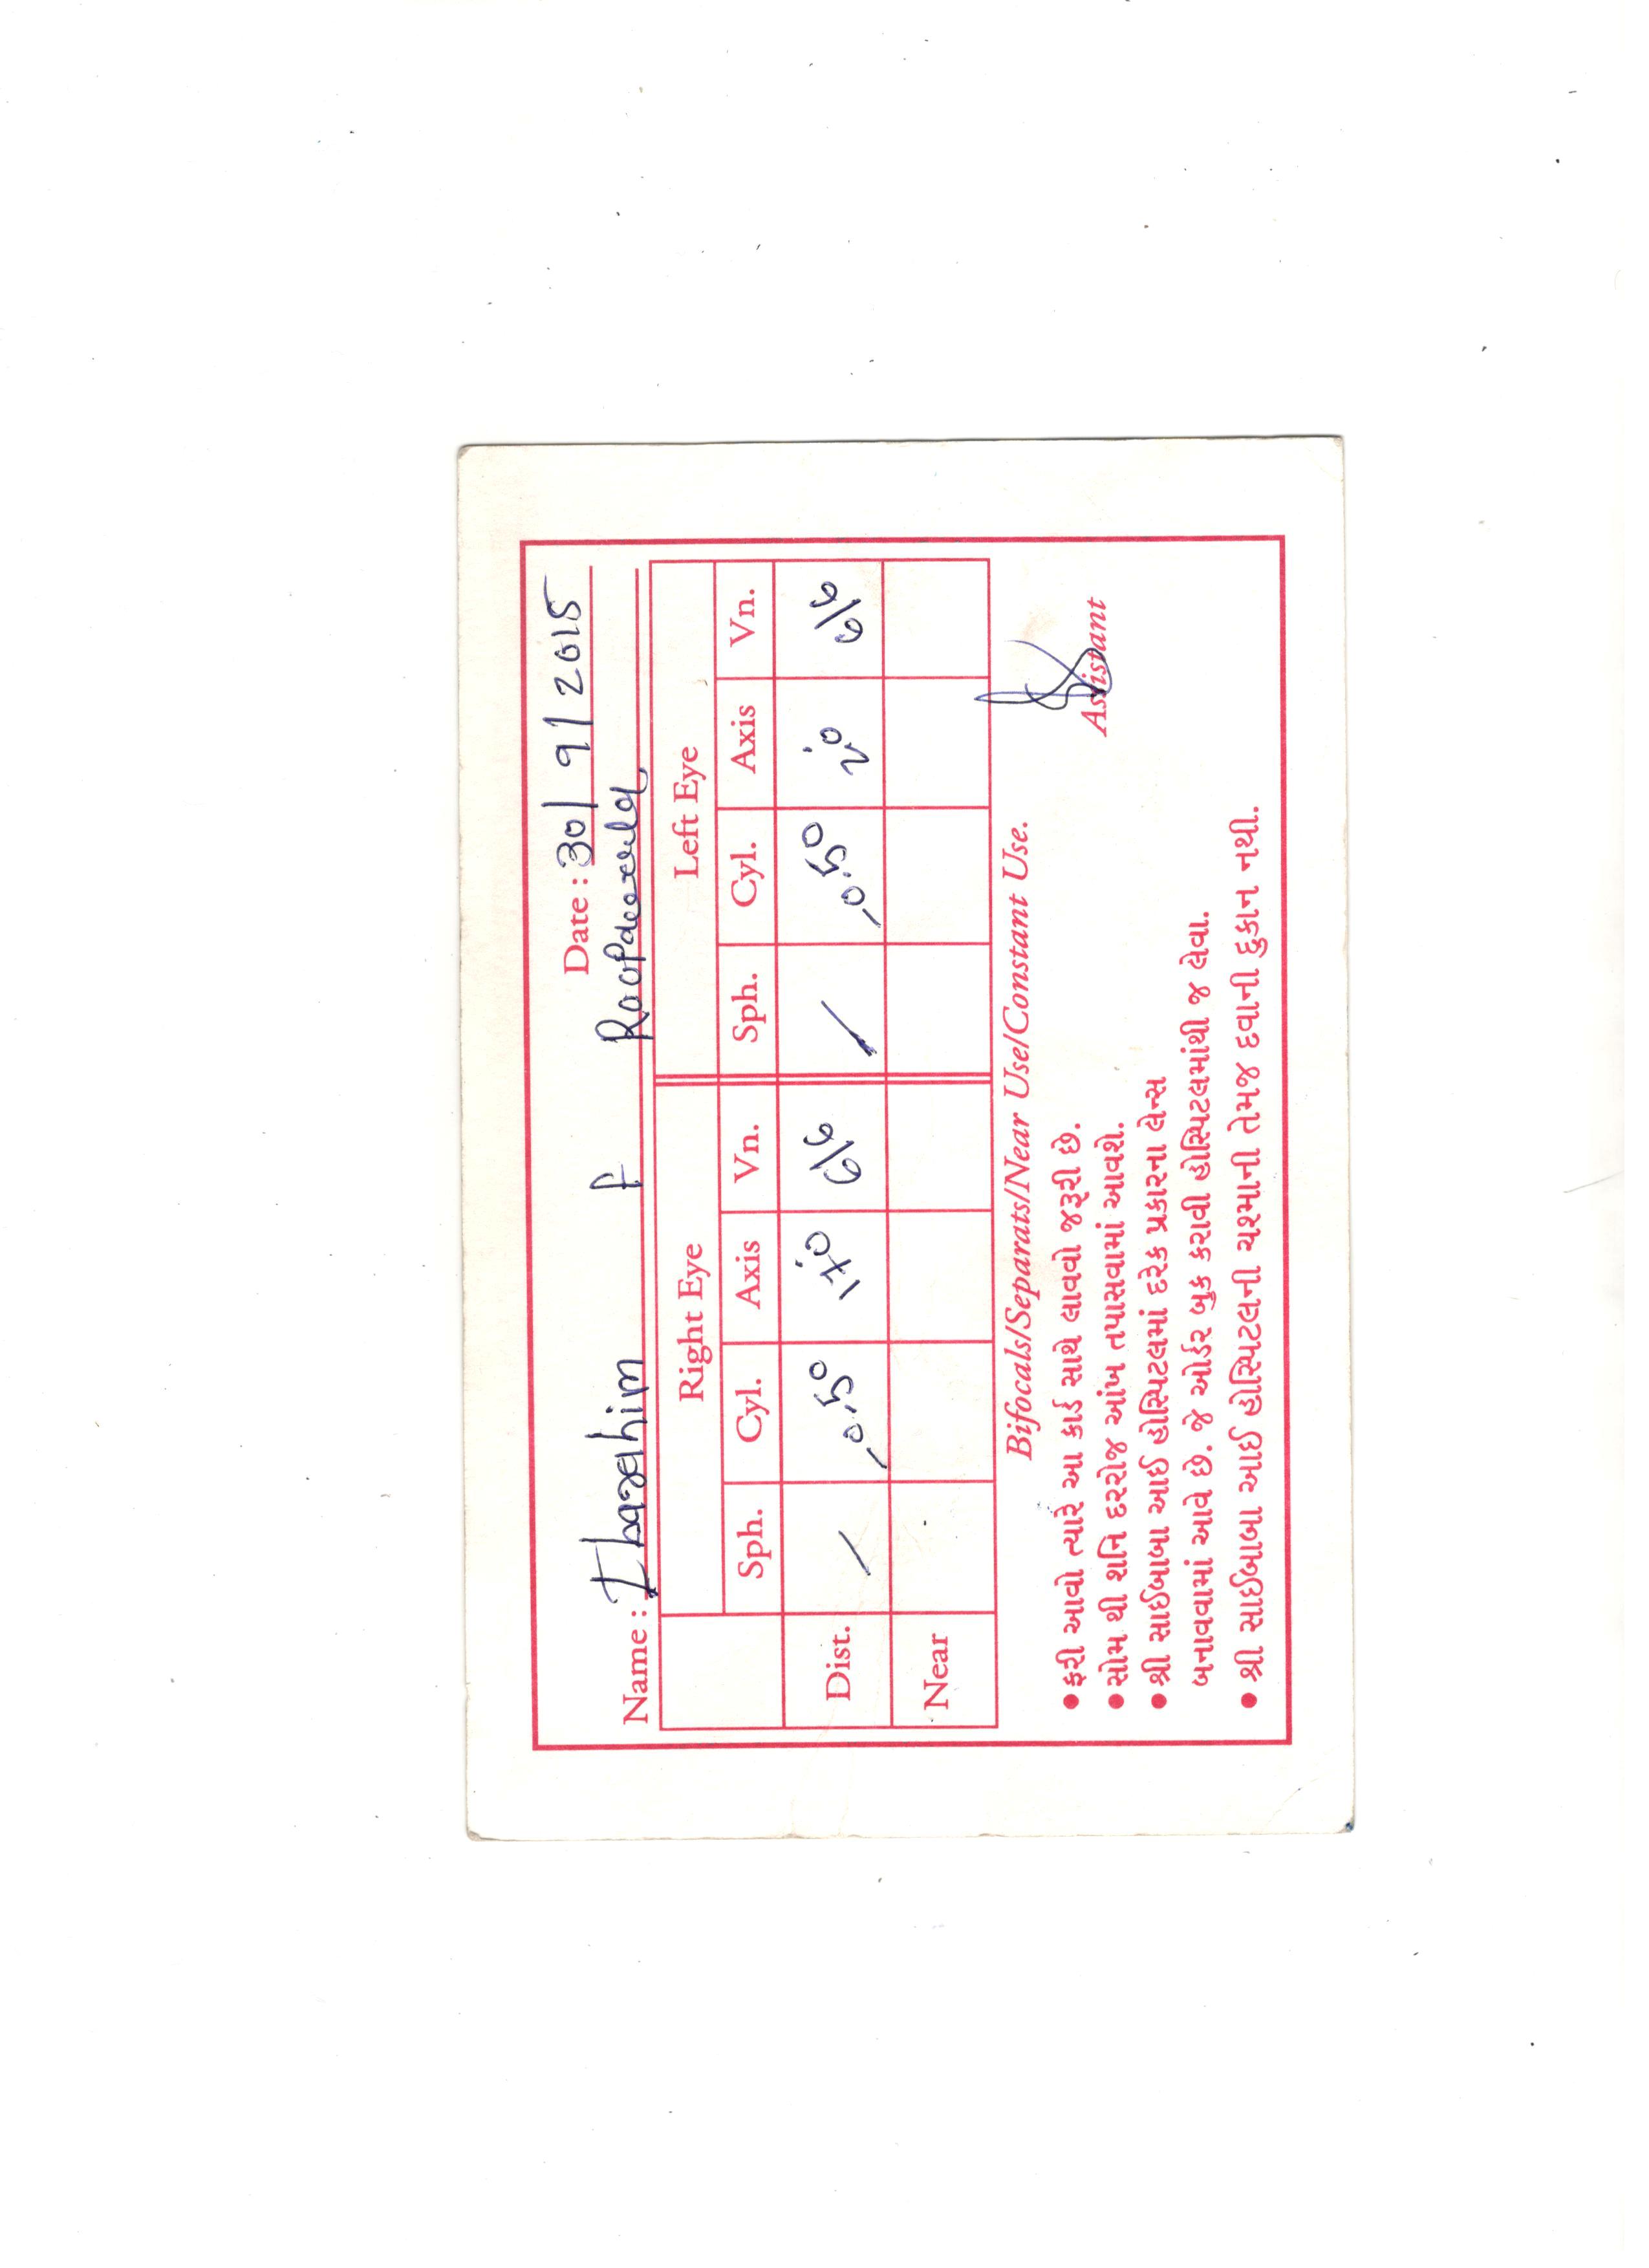 Date : 30/9/2015
Name : Ibrahim F
Right Eye Left Eye
Sph. Cyl. Axis Vn. Sph. Cyl. Axis Vn.
Dist. / -0.50 170 6/6 / -0.50 20 6/6
Near
Bifocals/Separats/Near Use/Constant Use.
• ફરી આવો ત્યારે આ કાર્ડ સાથે લાવવો જરૂરી છે.
• સોમ થી શનિ દરરોજ આંખ તપાસવામાં આવશે.
• શ્રી સાઈબાબા આઈ હોસ્પિટલમાં દરેક પ્રકારના લેન્સ
બનાવવામાં આવે છે. જે ઓર્ડર બુક કરાવી હોસ્પિટલમાંથી જ લેવા.
• શ્રી સાઈબાબા આઈ હોસ્પિટલની ચશ્માની તેમજ દવાની દુકાન નથી.
Assistant